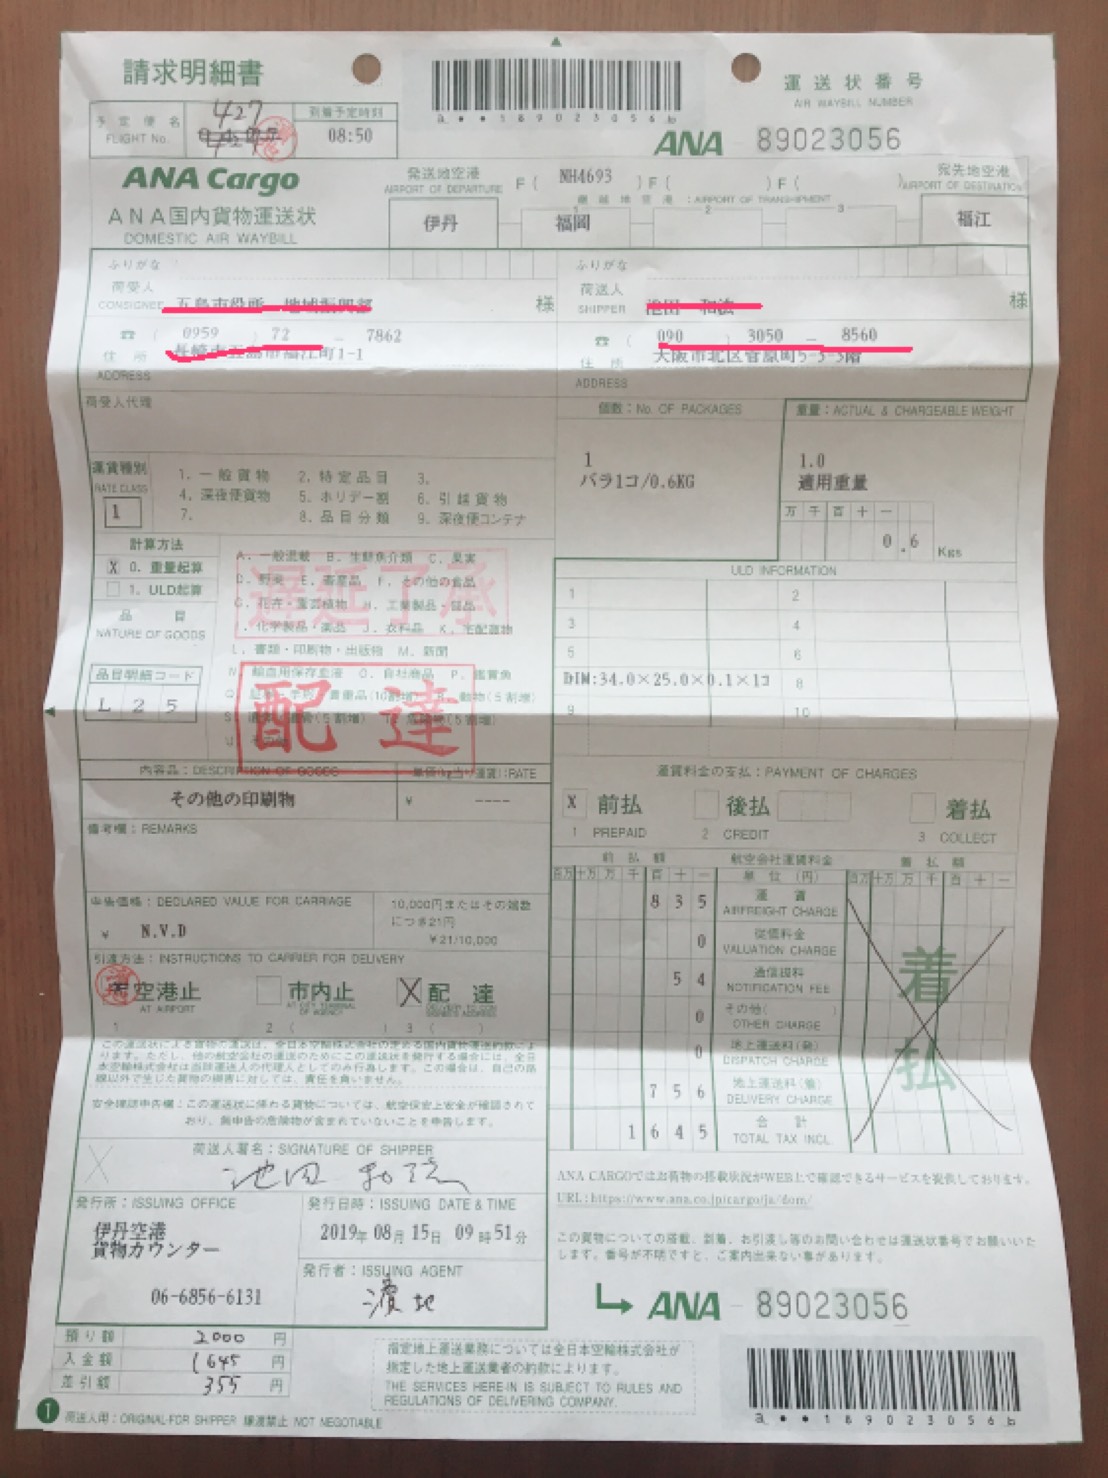 請求明細書
運送状番号
AIR WAYBILL NUMBER
a**189023056b
ANA 89023056
予定便名
FLIGHT No.
427
到着予定時刻
08:50
ANA Cargo
ANA国内貨物運送状
DOMESTIC AIR WAYBILL
発送地空港
AIRPORT OF DEPARTURE
F( NH4693 )F( )F( )
継越地空港:AIRPORT OF TRANSHIPMENT
宛先地空港
AIRPORT OF DESTINATION
伊丹
1
福岡
2
3
福江
ふりがな
荷受人
CONSIGNEE
様
☎ ( 0959 ) 72 - 7862
住所
ADDRESS
五島市福江町1-1
ふりがな
荷送人
SHIPPER
様
☎ ( 090 ) 3050 - 8560
住所
ADDRESS
大阪市北区菅原町5-5-3階
荷受人代理
個数:No. OF PACKAGES
1
バラ1コ/0.6KG
重量:ACTUAL & CHARGEABLE WEIGHT
1.0
適用重量
万 千 百 十 一
0.6 Kgs
運賃種別
RATE CLASS
1
1. 一般貨物 2. 特定品目 3.
4. 深夜便貨物 5. ホリデー割 6. 引越貨物
7. 8. 品目分類 9. 深夜便コンテナ
計算方法
X 0. 重量起算
1. ULD起算
品目
NATURE OF GOODS
品目明細コード
L 2 5
A. 一般混載 B. 生鮮魚介類 C. 果実
D. 野菜 E. 畜産品 F. その他の食品
G. 花卉・園芸植物 H. 工業製品・部品
I. 化学製品・薬品 J. 衣料品 K. 宅配貨物
L. 書類・印刷物・出版物 M. 新聞
N. 輸血用保存血液 O. 自社商品 P. 鑑賞魚
遅延了承
配達
ULD INFORMATION
1 2
3 4
5 6
DIM:34.0×25.0×0.1×1コ 8
9 10
内容品:DESCRIPTION OF GOODS
その他の印刷物
単価(kg当り運賃):RATE
¥ ----
備考欄:REMARKS
申告価格:DECLARED VALUE FOR CARRIAGE
¥ N.V.D
10,000円またはその端数
につき21円
¥21/10,000
引渡方法:INSTRUCTIONS TO CARRIER FOR DELIVERY
空港止
AT AIRPORT
1
市内止
AT CITY TERMINAL OF AGENCY
2 ( )
配達
3 ( )
運賃料金の支払:PAYMENT OF CHARGES
X 前払
1 PREPAID
後払
2 CREDIT
着払
3 COLLECT
前払額
百万 十万 万 千 百 十 一
航空会社運賃料金
単位(円)
着払額
百万 十万 万 千 百 十 一
835
運賃
AIRFREIGHT CHARGE
0
従価料金
VALUATION CHARGE
54
通信娯料
NOTIFICATION FEE
0
その他( )
OTHER CHARGE
0
地上運送料(発)
DISPATCH CHARGE
756
地上運送料(着)
DELIVERY CHARGE
1645
合計
TOTAL TAX INCL.
着払
この運送状による貨物の運送は、全日本空輸株式会社の定める国内貨物運送約款によ
ります。ただし、他の航空会社の運送のためにこの運送状を発行する場合には、全日
本空輸株式会社は当該運送人の代理人としてのみ行為します。この場合は、自己の路
線以外で生じた貨物の損害に対しては、責任を負いません。
安全確認申告欄:この運送状に係わる貨物については、航空保安上安全が確認されて
おり、無申告の危険物が含まれていないことを申告します。
荷送人署名:SIGNATURE OF SHIPPER
池田 和
発行所:ISSUING OFFICE
伊丹空港
貨物カウンター
06-6856-6131
発行日時:ISSUING DATE & TIME
2019年08月15日 09時51分
発行者:ISSUING AGENT
ANA CARGOではお荷物の搭載状況がWEB上で確認できるサービスを提供しております。
URL:https://www.ana.co.jp/cargo/ja/dom/
この貨物についての搭載、到着、お引渡し等のお問い合わせは運送状番号でお願いいた
します。番号が不明ですと、ご案内出来ない事があります。
ANA - 89023056
預り額 2000 円
入金額 1645 円
差引額 355 円
指定地上運送業務については全日本空輸株式会社が
指定した地上運送業者の約款によります。
THE SERVICES HERE-IN IS SUBJECT TO RULES AND
REGULATIONS OF DELIVERING COMPANY.
a**189023056b
1 荷送人用:ORIGINAL-FOR SHIPPER 譲渡禁止 NOT NEGOTIABLE